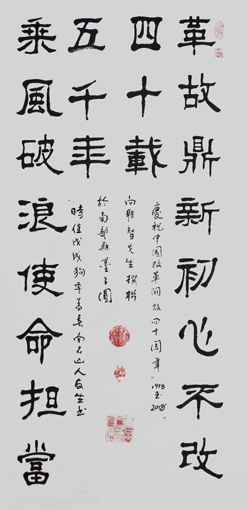 革故鼎新初心不改
四十載
慶祝中国改革開放四十周年
1978至2018
先生撰聯
乘風破浪使命担當
五千年
於南部縣墨子園
戊戌狗年